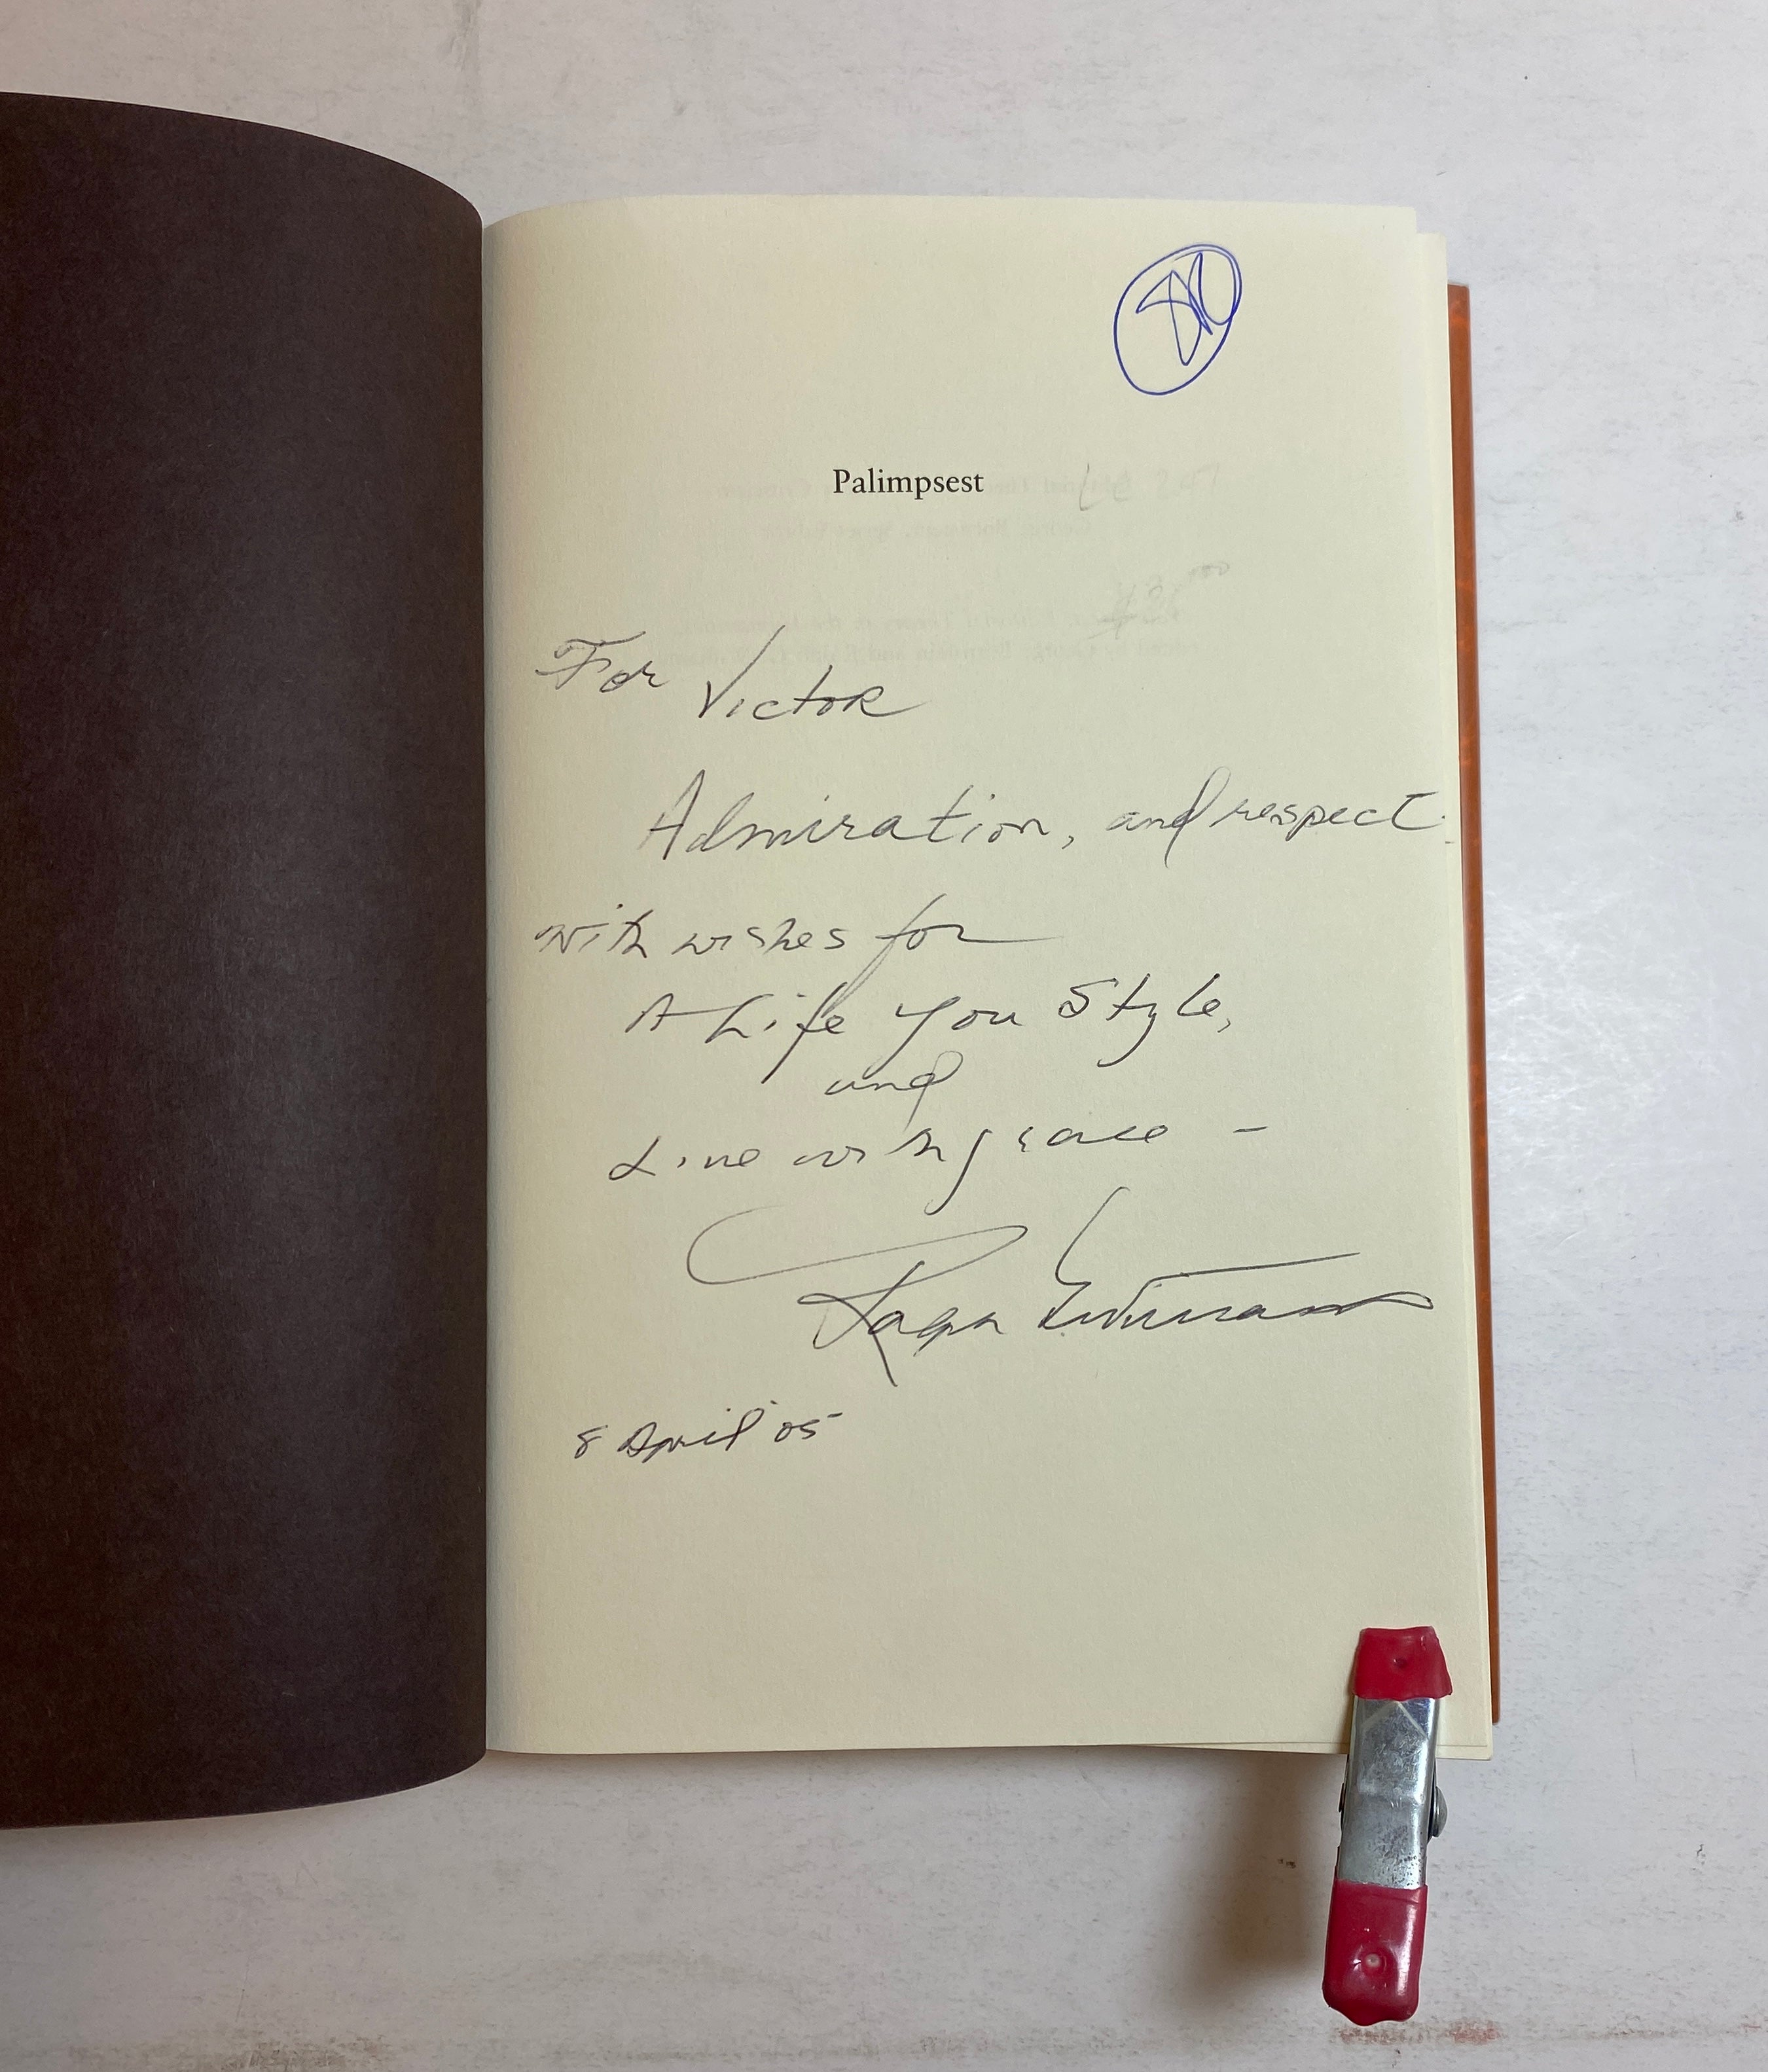 Palimpsest
For Victor
Admiration, and respect
with wishes for
A Life you Style,
and
Live with grace –
8 April '05